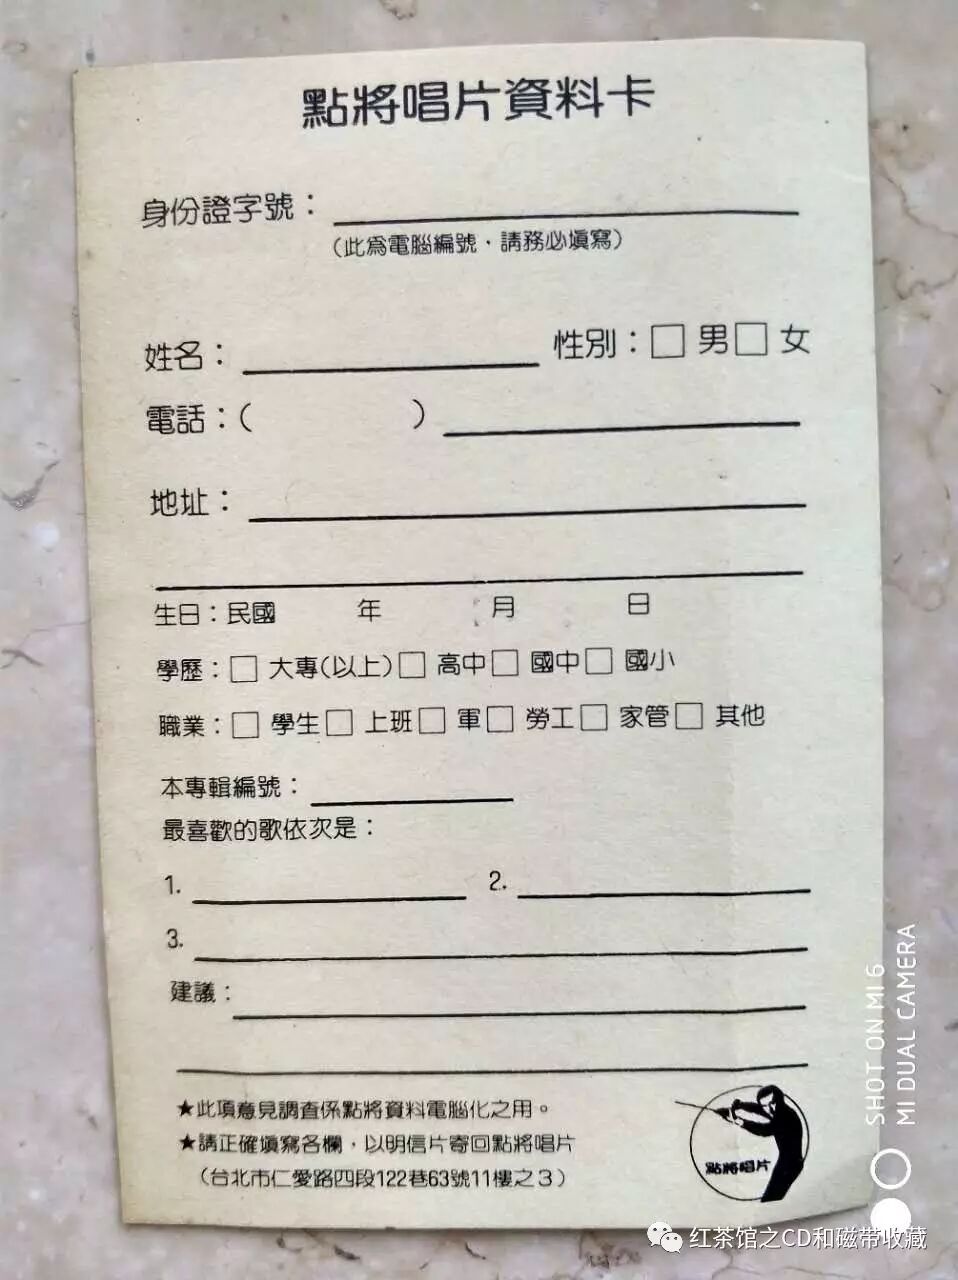 點將唱片資料卡
身份證字號：
（此為電腦編號，請務必填寫）
姓名： 性別：□ 男□ 女
電話：（ ）
地址：
生日：民國 年 月 日
學歷：□ 大專（以上）□ 高中□ 國中□ 國小
職業：□ 學生□ 上班□ 軍□ 勞工□ 家管□ 其他
本專輯編號：
最喜歡的歌依次是：
1. 2.
3.
建議：
★此項意見調查係點將資料電腦化之用。
★請正確填寫各欄，以明信片寄回點將唱片
（台北市仁愛路四段122巷63號11樓之3）
點將唱片
SHOT ON MI 6
MI DUAL CAMERA
红茶馆之CD和磁带收藏